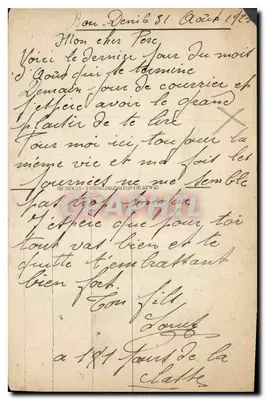 Bou-Denib 31 Août 192
Mon cher Père
Voici le dernier jour du mois
d'Août qui se termine
Demain jour de courrier et
j'espère avoir le grand
plaisir de te lire
Pour moi ici, toujours la
même vie et ma foi les
journées ne me semble
pas trop longue
J'espère que pour toi
tout vas bien et te
quitte t'embrassant
bien fort.
Ton fils
Louis
a 121 jours de la
classe